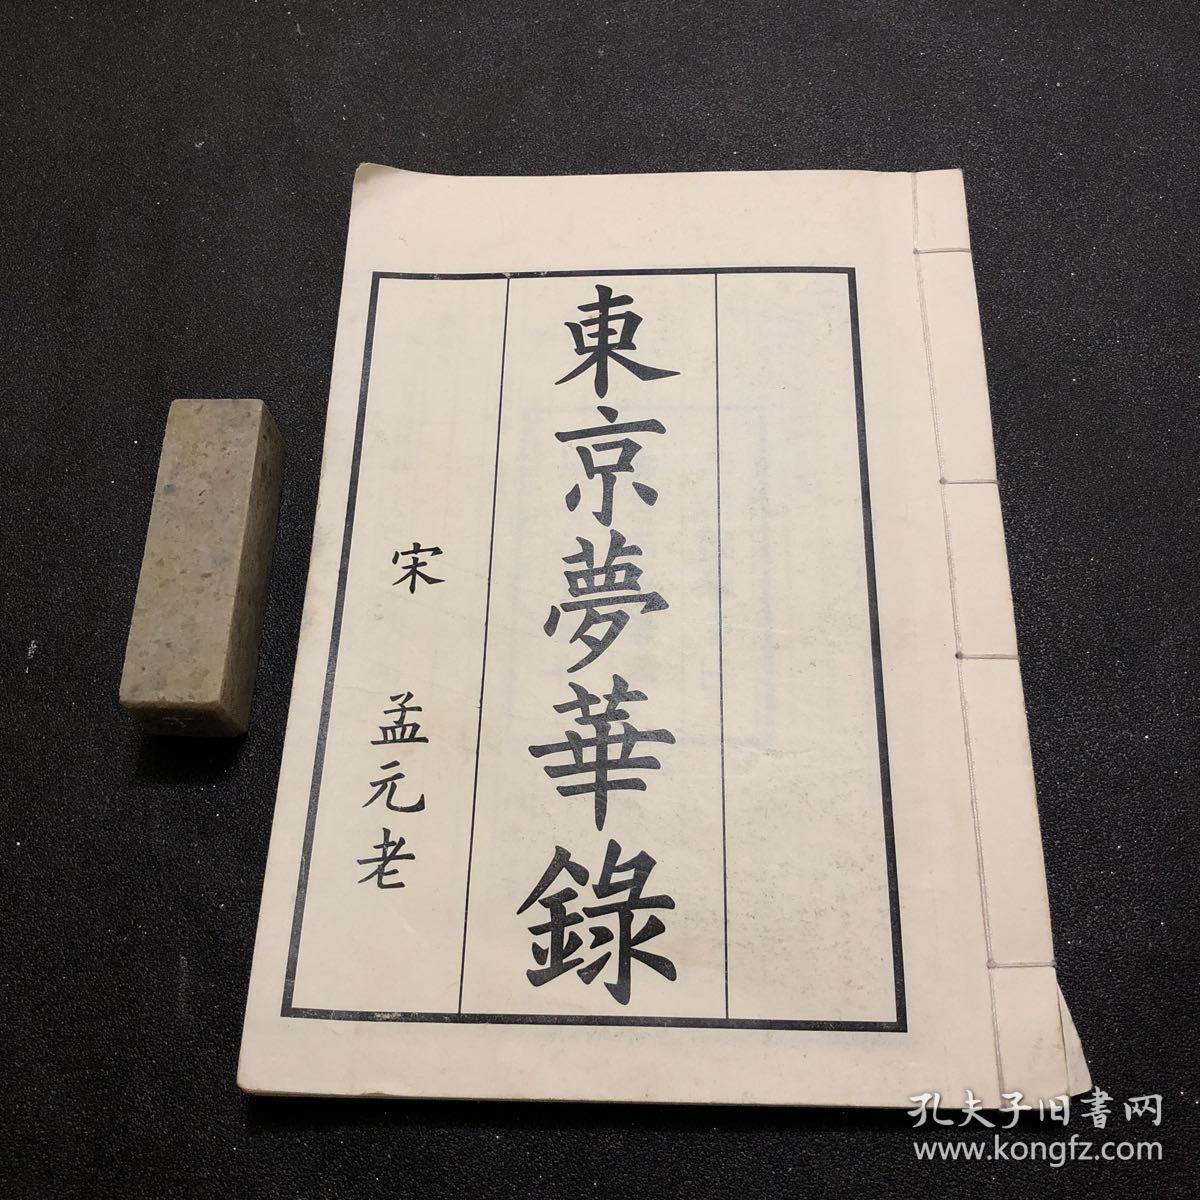 東京夢華錄
宋 孟元老
孔夫子旧書网
www.kongfz.com